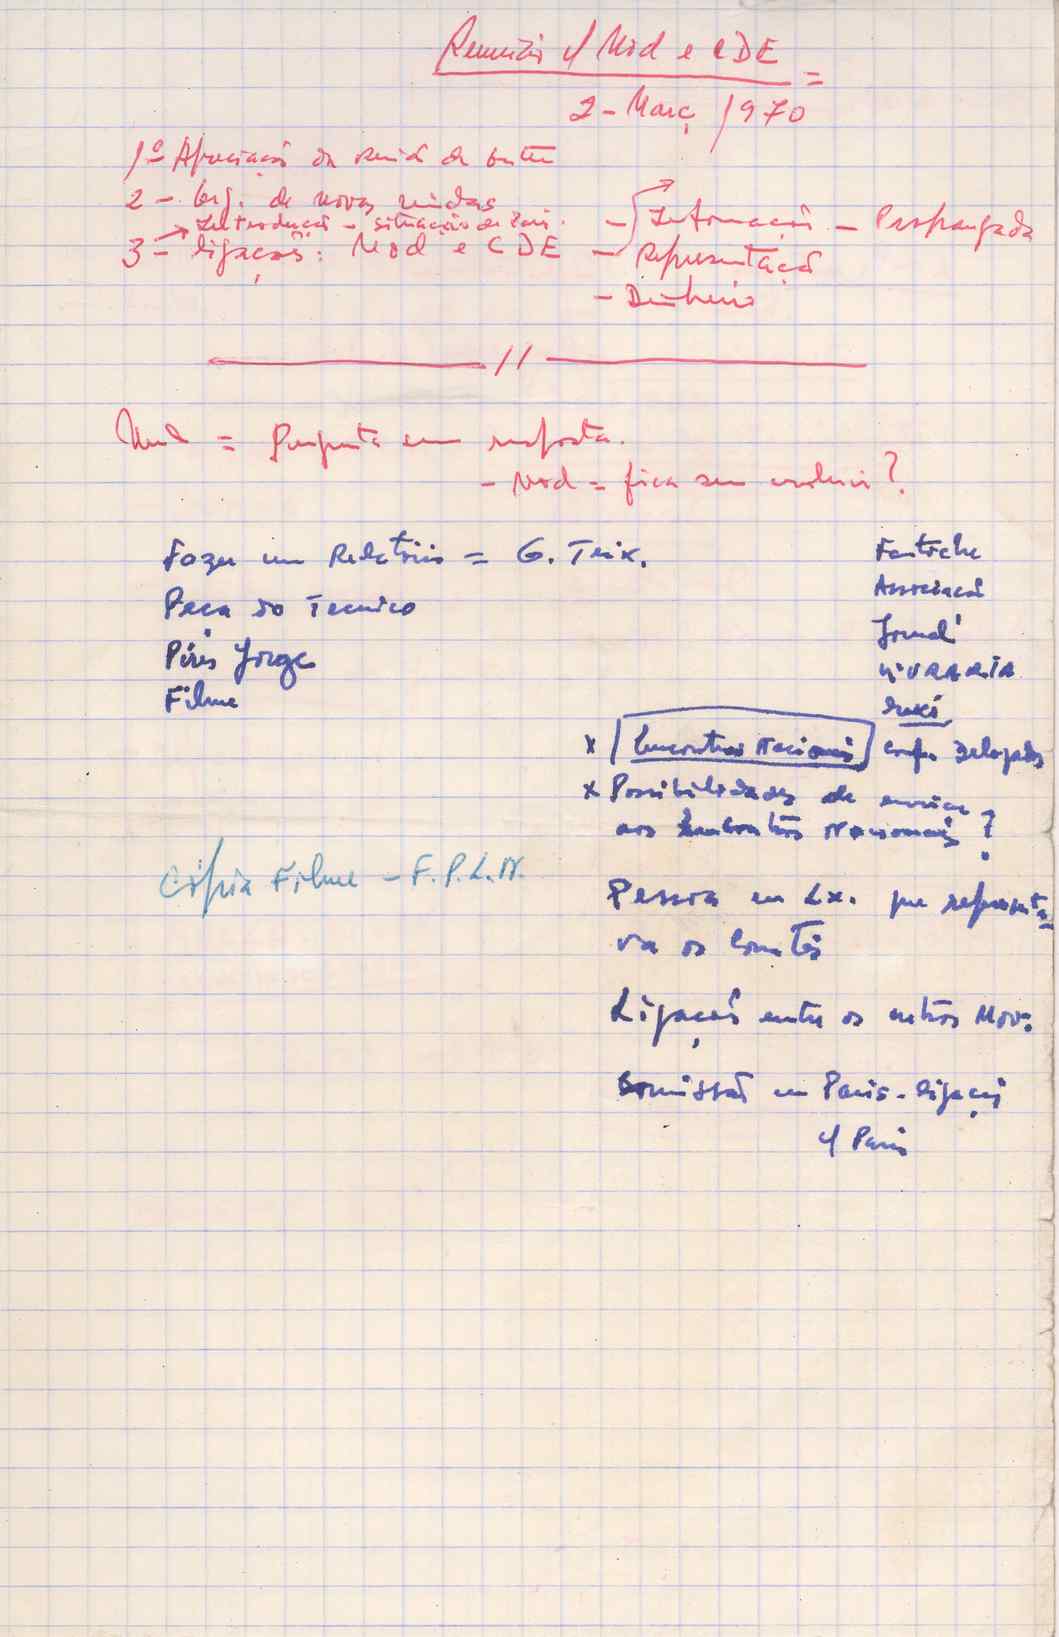 Reunião c/ Mod e CDE =
2 - Març / 1970
1º Apreciação da reunião de ontem
2 - Org. de novas vindas
→ Introdução - situação do País.
3 - ligação: Mod e CDE
- Informação - Propaganda
- Representação
- Dinheiro
//
Mod = Pergunta sem resposta.
- Mod = fica sem
Fazer um Relatório = G. Teix.
Peça do Tecnico
Pires Jorge
Filme
Fantoche
Associação
Jornal
LIVRARIA
x Encontros Nacionais confr. Delegados
x Possibilidades de enviar
aos Encontros Nacionais ?
Cópia Filme - F.P.L.N.
Pessoa em Lx. que representa-
va os Comités
Ligação entre os outros Mov.
Comissão em Paris - ligação
c/ Paris